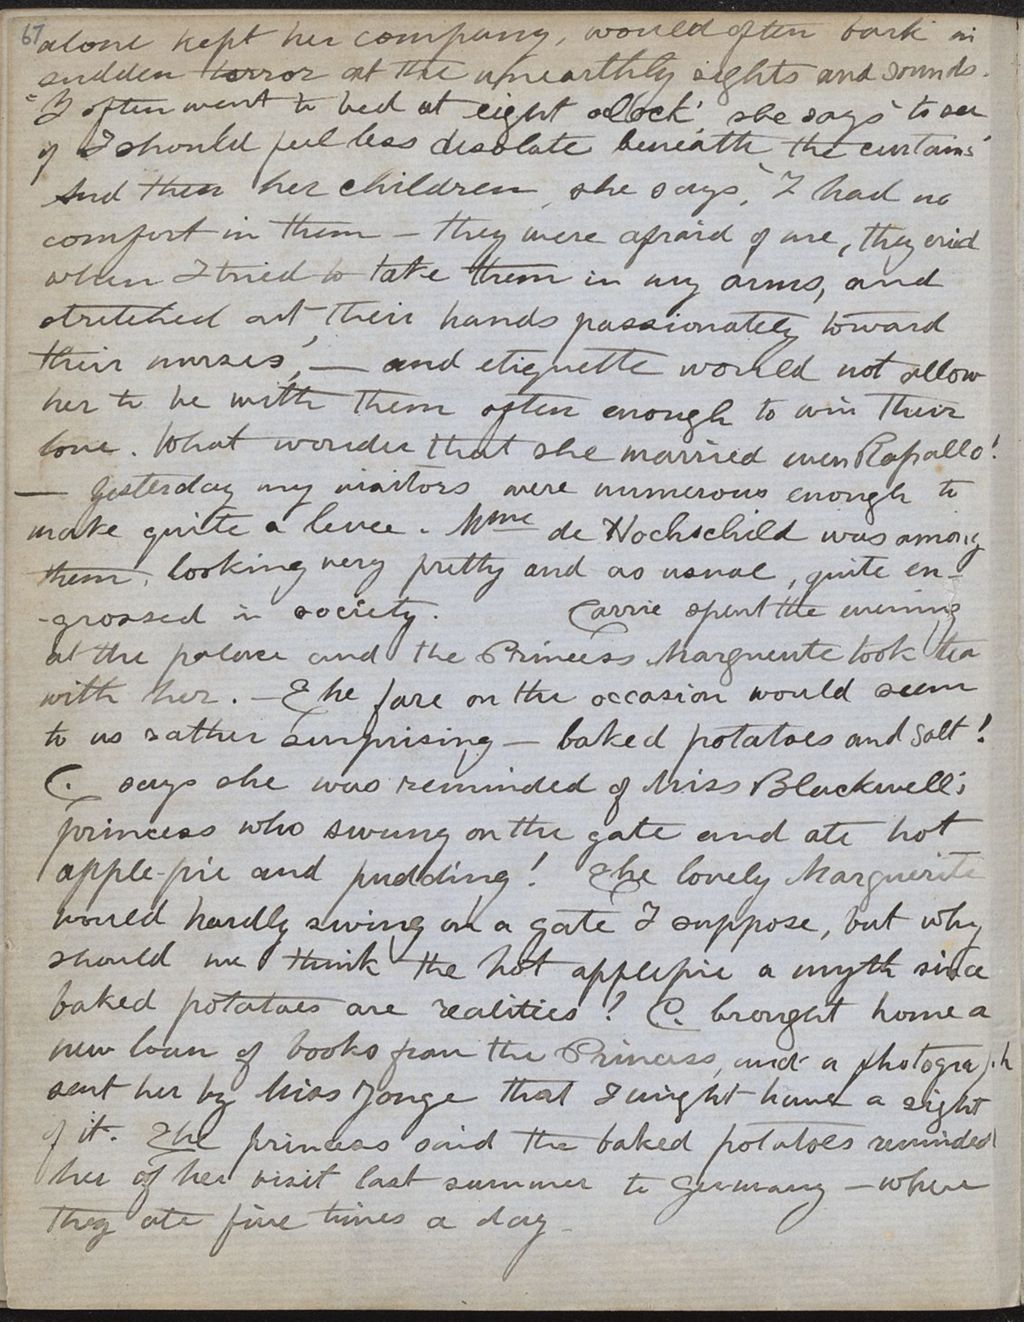 67
alone kept her company, would often bark in
sudden terror at the unearthly sights and sounds.
"I often went to bed at eight oclock' she says 'to see
if I should feel less desolate beneath the curtains'
And then her children, she says, 'I had no
comfort in them — they were afraid of me, they cried
when I tried to take them in my arms, and
stretched out their hands passionately toward
their nurses', — and etiquette would not allow
her to be with them often enough to win their
love. What wonder that she married even Rapallo!
— Yesterday my visitors were numerous enough to
make quite a levee. Mme de Hochschild was among
them, looking very pretty and as usual, quite en-
-grossed in society. Carrie spent the evening
at the palace and the Princess Marguerite took tea
with her. — The fare on the occasion would seem
to us rather surprising — baked potatoes and salt!
C. says she was reminded of Miss Blackwell's
princess who swung on the gate and ate hot
apple-pie and pudding! The lovely Marguerite
would hardly swing on a gate I suppose, but why
should we think the hot applepie a myth since
baked potatoes are realities! C. brought home a
new loan of books from the Princess, and a photograph
sent her by Miss Yonge that I might have a sight
of it. The princess said the baked potatoes reminded
her of her visit last summer to Germany — where
they ate five times a day —